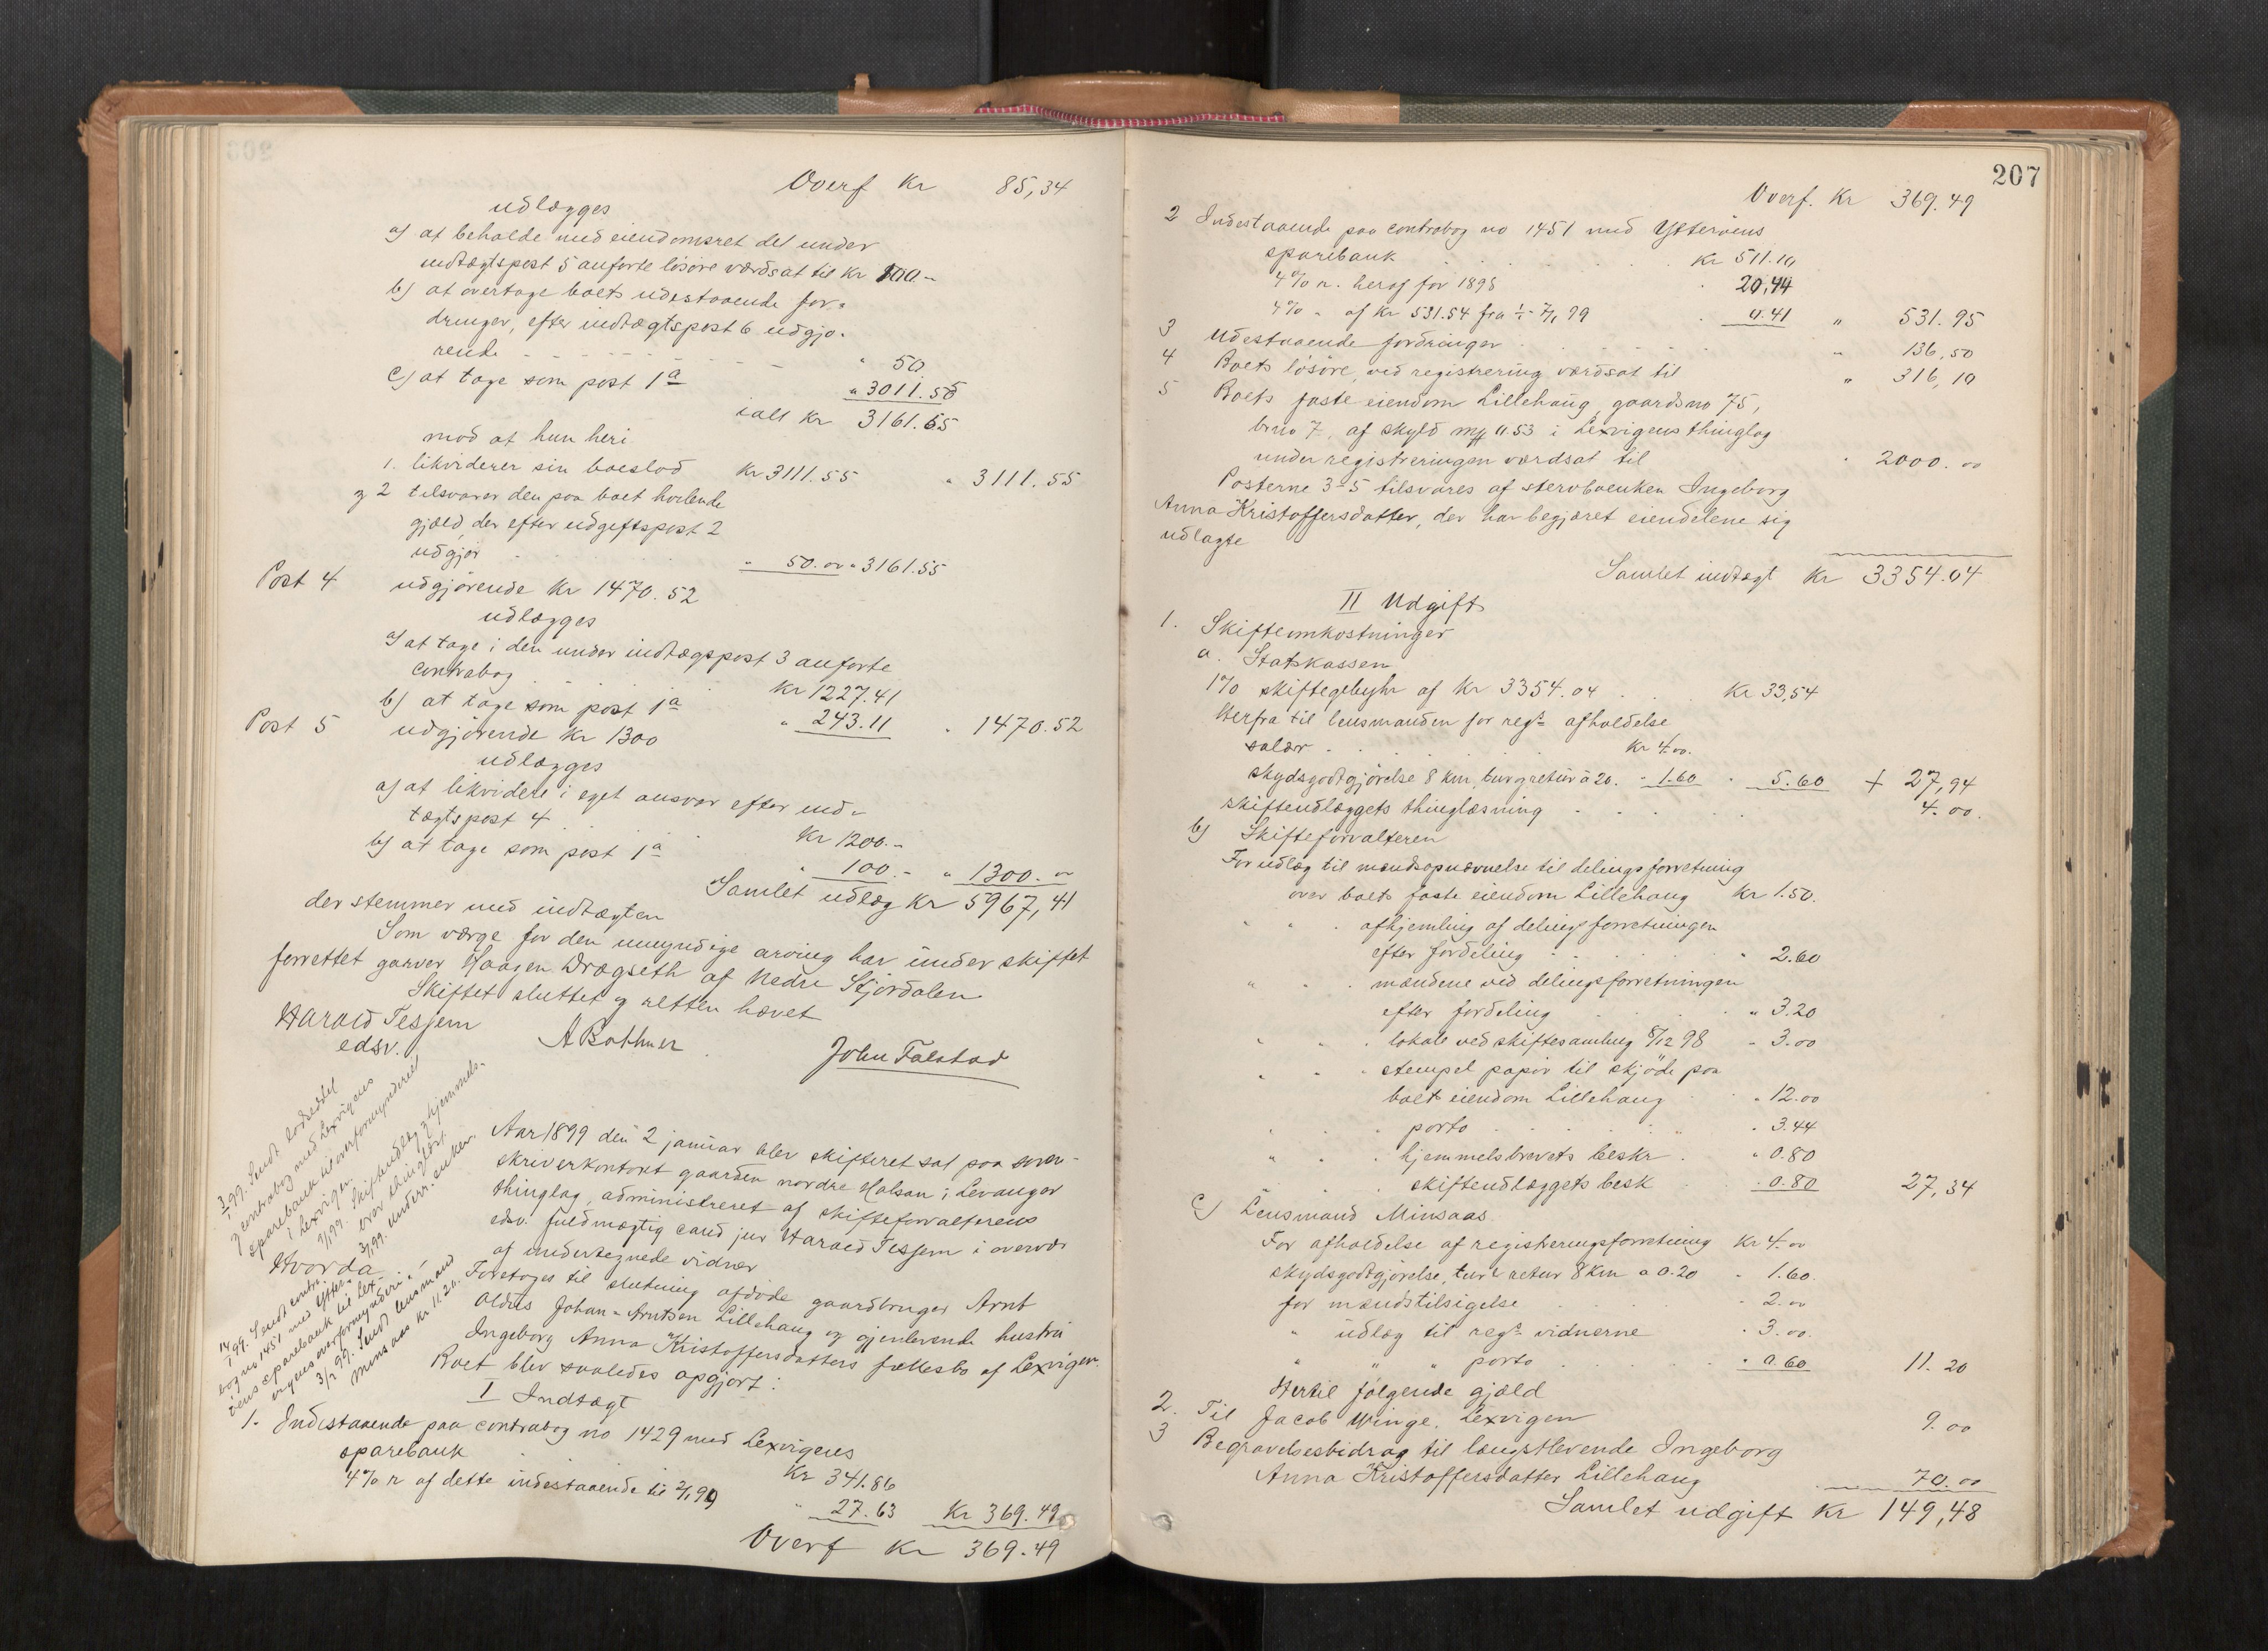 Overf Kr 85,34
udlægges
a) at beholde med eiendomsret det under
indtægtspost 5 anførte løsøre værdsat til Kr 100.-
b) at overtage boets udestaaende for-
dringer, efter indtægtspost 6 udgjø-
rende " 50
c) at tage som post 1a " 3011.55
ialt Kr 3161.55
mod at hun heri
1. likviderer sin boeslod Kr 3111.55 " 3111.55
og 2 tilsvarer den paa boet hvilende
gjæld, der efter udgiftspost 2
udgjør " 50.00 " 3161.55
Post 4 udgjørende Kr 1470.52
udlægges
a) at tage i den under indtægspost 3 anførte
contrabog Kr 1227.41
b) at tage som post 1a " 243.11 " 1470.52
Post 5 udgjørende Kr 1300
udlægges
a) at likvidere i eget ansvar efter ind-
tægtspost 4 Kr 1200.-
b) at tage som post 1a " 100.- " 1300.00
Samlet udlæg Kr 5967,41
der stemmer med indtægten
Som værge for den umyndige arving har under skiftet
forrettet garver Haagen Drogseth af Nedre Stjørdalen
Skiftet sluttet og retten hævet
Harald Tessem
edsv.
A Bothner
John Falstad
1/3 99. Sendt lodseddel
og contrabog med Lexvigens
sparebank til overformynderiet
i Lexvigen.
Skifteudlæg og hjemmels-
brev thinglæst.
underr. enken.
Hvorda
14/1 99. Sendt contra-
bog no 1451 med Ytter-
øens sparebank til Lex-
vigens overformynderi.
3/2 99. Sendt lensmand
Minsaas Kr 11.20.
Aar 1899 den 2 januar blev skifteret sat paa soren-
skriverkontoret gaarden nordre Halsan i Levanger
thinglag, administreret af skifteforvalterens
edsv. fuldmægtig cand jur Harald Tessem i overvær
af undertegnede vidner
Foretoges til slutning afdøde gaardbruger Arnt
Oldus Johan-Arntsen Lillehaug og gjenlevende hustru
Ingeborg Anna Kristoffersdatters fællesbo af Lexvigen.
Boet blev saaledes opgjort:
I Indtægt
1. Indestaaende paa contrabog no 1429 med Lexvigens
sparebank Kr 341.86
4% r af dette indestaaende til 2/1 99 " 27.63 Kr 369.49
Overf Kr 369.49
207
Overf. Kr 369.49
2 Indestaaende paa contrabog no 1451 med Ytterøens
sparebank Kr 511.10
4% r. heraf for 1898 " 20,44
4% " af Kr 531.54 fra 1/1 - 7/1 99 0.41 " 531.95
3 Udestaaende fordringer " 136,50
4 Boets løsøre, ved registrering værdsat til " 316,10
5 Boets faste eiendom Lillehaug, gaardsno 75,
brno 7, af skyld mk 0.53 i Lexvigens thinglag
under registreringen værdsat til " 2000.00
Posterne 3-5 tilsvares af stervboenken Ingeborg
Anna Kristoffersdatter, der har begjæret eiendelene sig
udlagte
Samlet indtægt Kr 3354.04
II Udgift
1. Skifteomkostninger
a. Statskassen
1% skiftegebyhr af Kr 3354.04 Kr 33,54
Herfra til lensmanden for regs afholdelse
salær Kr 4.00.
skydsgodtgjørelse 8 km, tur og retur à 20. " 1.60 " 5.60 + 27,94
skifteudlæggets thinglæsning 4.00.
b) Skifteforvalteren
For udlæg til mændsopnævnelse til delingsforretning
over boets faste eiendom Lillehaug Kr 1.50.
" " " afhjemling af delingsforretningen
efter fordeling " 2.60
" " " mændene ved delingsforretningen
efter fordeling " 3.20
" " " lokale ved skiftesamling 8/12 98 " 3.00
" " " stempel papir til skjøde paa
boets eiendom Lillehaug " 12.00
" " " porto " 3.44
" " " hjemmelsbrevets beskr. " 0.80
" " " skifteudlæggets besk " 0.80 27,34
c) Lensmand Minsaas
For afholdelse af registreringsforretning Kr 4.00
skydsgodtgjørelse, tur & retur 8 Km a 0.20 " 1.60.
for mændstilsigelse " 2.00
" udlæg til regs vidnerne " 3.00.
" " " porto " 0.60 11.20
Hertil følgende gjæld
2. Til Jacob Winge, Lexvigen 9.00
3 Begravelsesbidrag til længstlevende Ingeborg
Anna Kristoffersdatter Lillehaug 70.00
Samlet udgift Kr 149,48